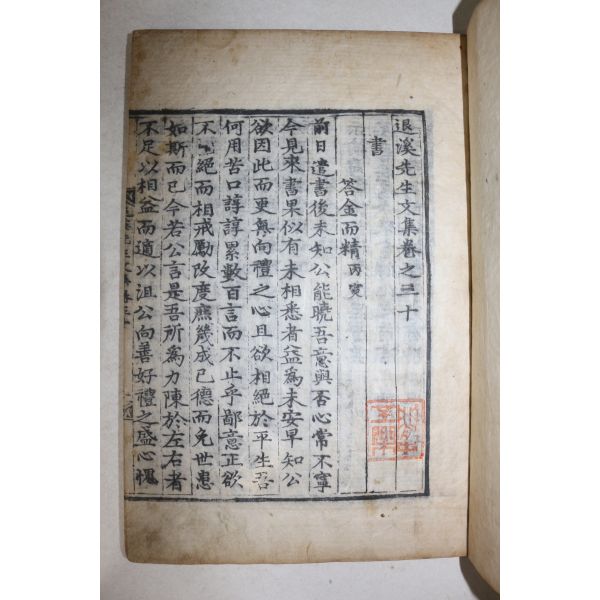 退溪先生文集卷之三十
書
答金而精 丙寅
前日遣書後未知公能曉吾意與否心常不寧
今見來書果似有未相悉者益爲未安早知公
欲因此而更無向禮之心且欲相絕於平生吾
何用苦口諄諄累數百言而不止乎鄙意正欲
不絕而相戒勵改度庶幾成已德而免世患
如斯而已今若公言是吾所爲力陳於左右者
不足以相益而適以沮公向善好禮之盛心愧